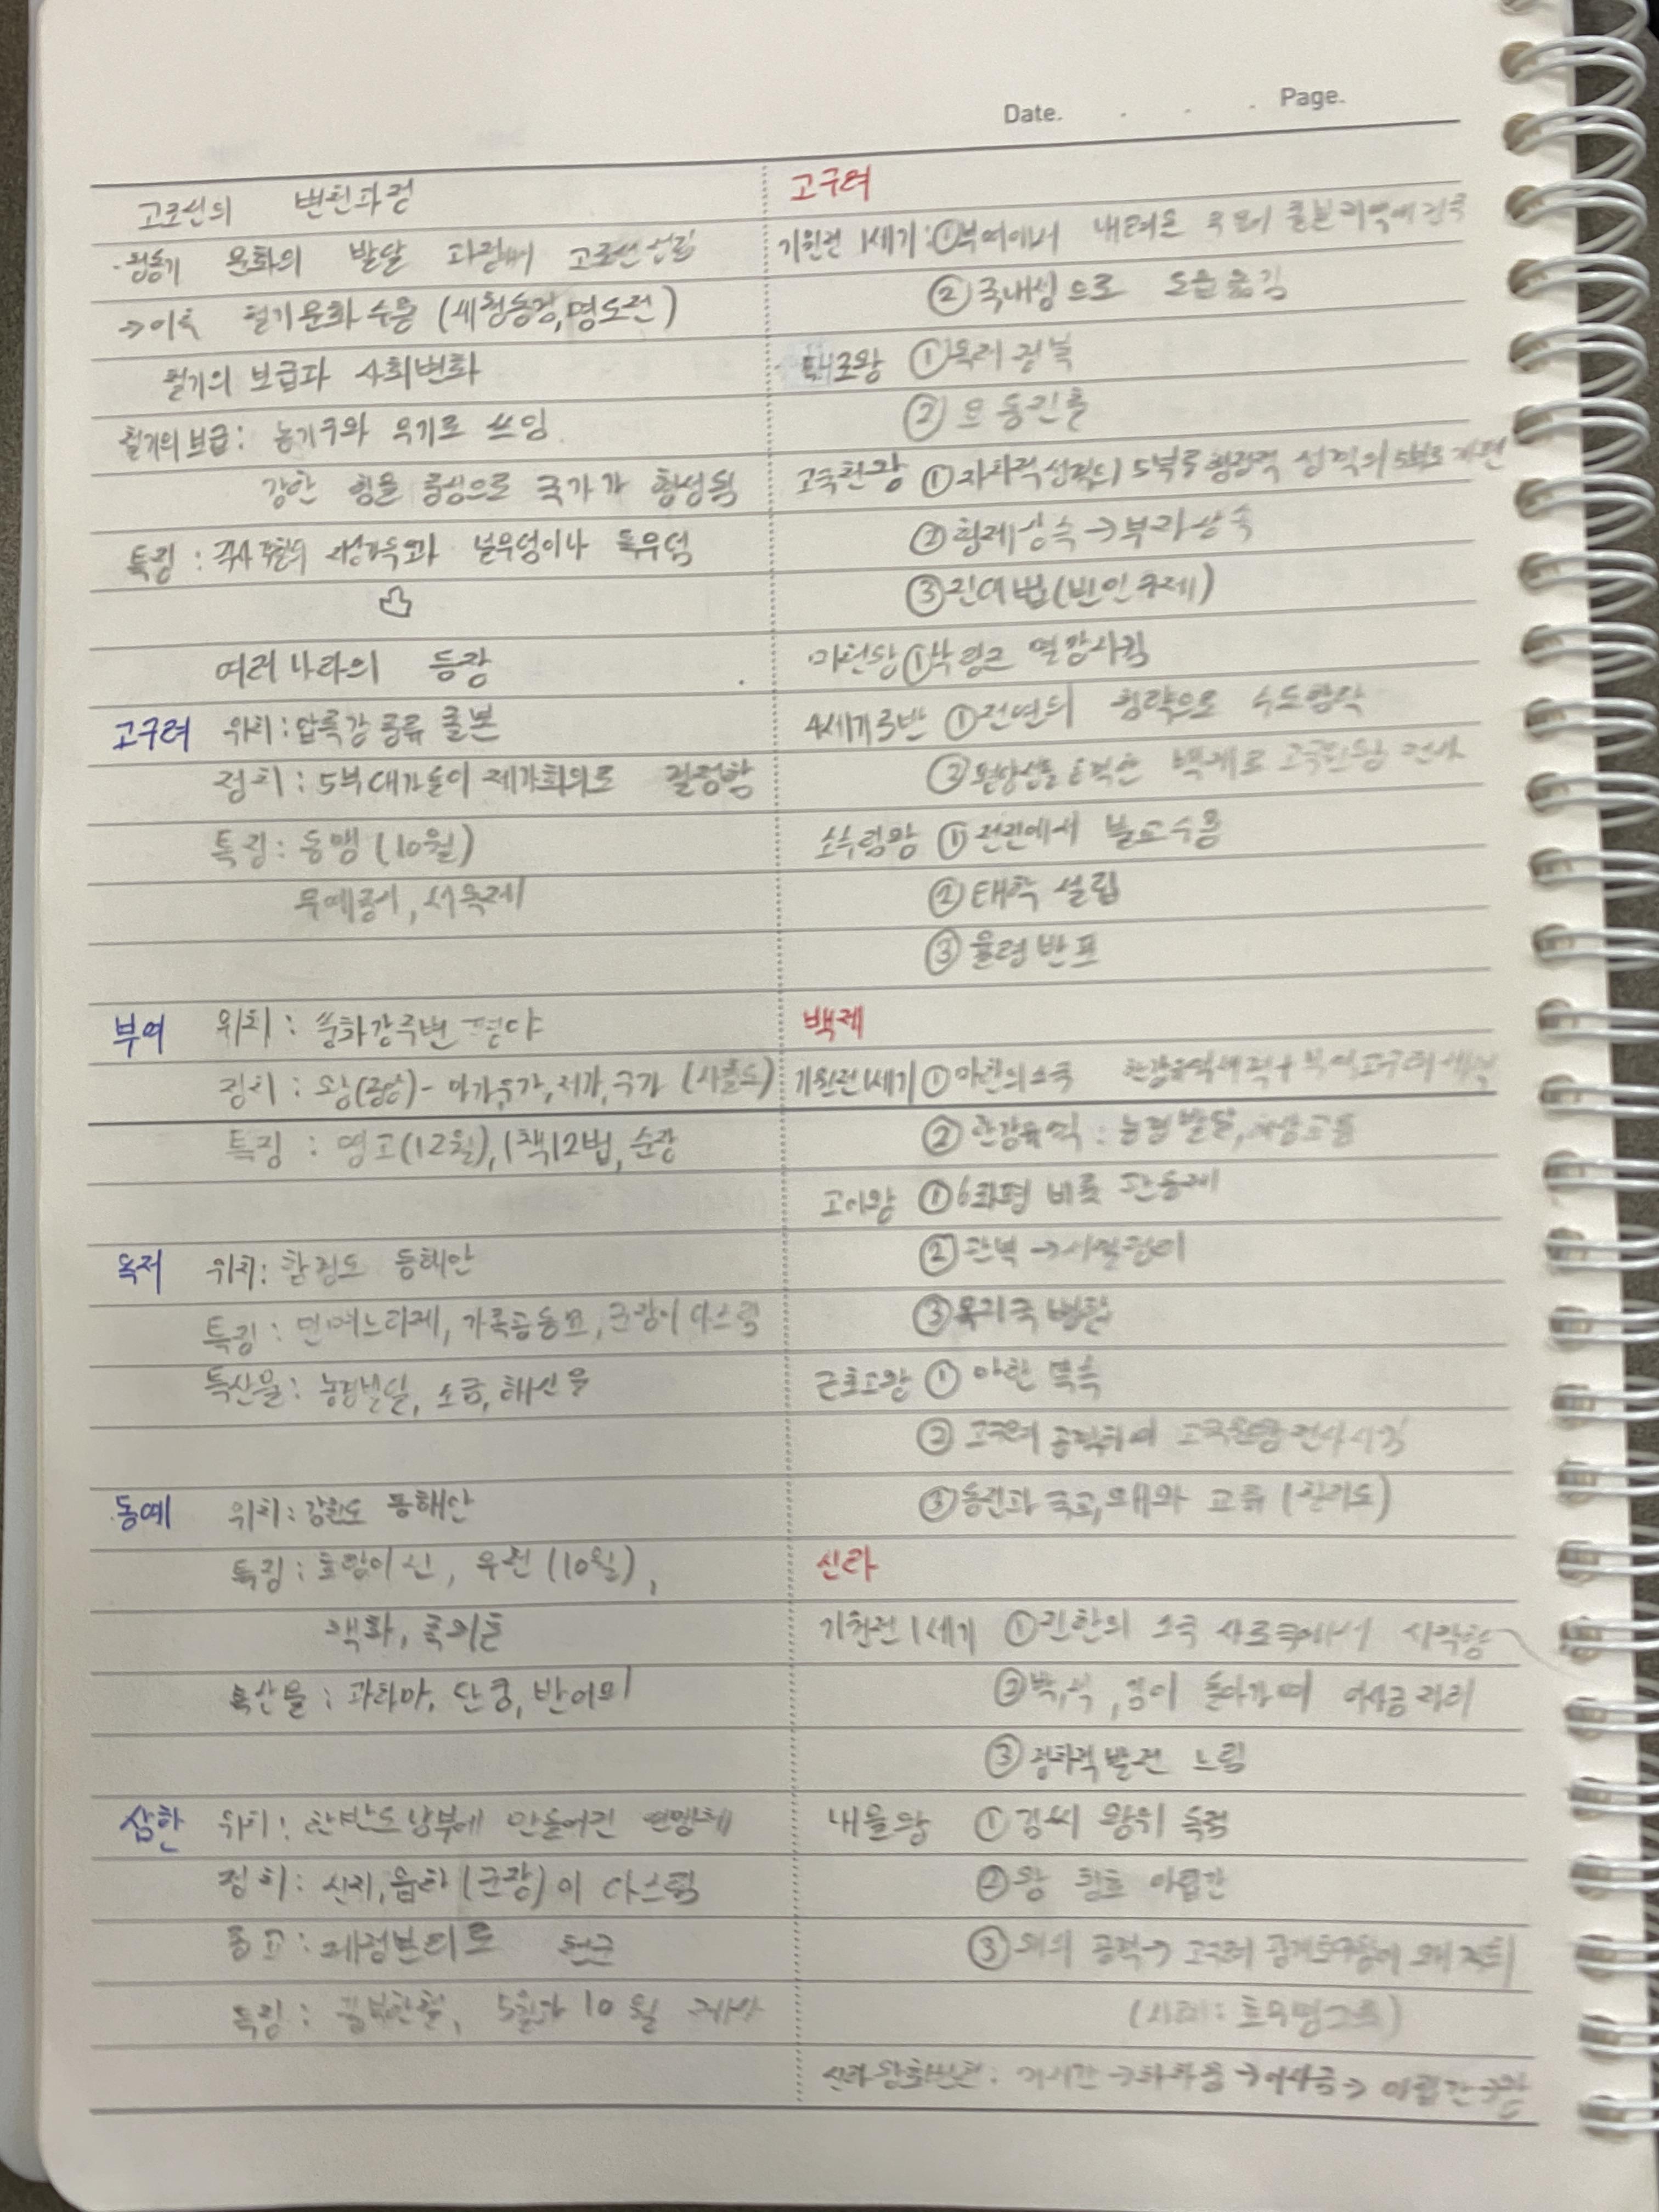 Date. . . . Page.
고조선의 변천과정
·청동기 문화의 발달 과정에서 고조선 성립
→이후 철기문화 수용 (세형동검, 명도전)
철기의 보급과 사회변화
철기의 보급: 농기구와 무기로 쓰임
강한 힘을 중심으로 국가가 형성됨
특징: 널무덤이나 독무덤
여러 나라의 등장
고구려 위치: 압록강 중류 졸본
정치: 5부 대가들이 제가회의로 결정함
특징: 동맹 (10월)
무예중시, 서옥제
부여 위치: 쑹화강주변 평야
정치: 왕(중앙)- 마가,우가,저가,구가 (사출도)
특징: 영고(12월), 1책12법, 순장
옥저 위치: 함경도 동해안
특징: 민며느리제, 가족공동묘, 군장이 다스림
특산물: 농경발달, 소금, 해산물
동예 위치: 강원도 동해안
특징: 호랑이 신, 무천 (10월),
책화, 족외혼
특산물: 과하마, 단궁, 반어피
삼한 위치: 한반도 남부에 만들어진 연맹체
정치: 신지, 읍차 (군장)이 다스림
종교: 제정분리로
특징: 5월과 10월
고구려
기원전 1세기: ①부여에서 내려온 졸본지역에 건국
②국내성으로 도읍 옮김
태조왕 ①옥저 정복
②요동진출
고국천왕 ①자치적 성격의 5부를 행정적 성격의 5부로 개편
②형제상속→부자상속
③진대법(빈민구제)
미천왕 ①낙랑군 멸망시킴
4세기 중반 ①전연의 침략으로 수도함락
② 백제로 고국원왕 전사
소수림왕 ①전진에서 불교수용
②태학 설립
③율령반포
백제
기원전1세기 ①마한의소국 한강유역세력+부여고구려세력
②한강유역: 농경발달,
고이왕 ①6좌평 비롯 관등제
②관복
③목지국 병합
근초고왕 ①마한 복속
②고구려 공격하여 고국원왕 전사시킴
③동진과 국교, 왜와 교류 (칠지도)
신라
기원전 1세기 ①진한의 소국 사로국에서 시작함
②박,석,김이 돌아가며 이사금 자리
③정치적발전 느림
내물왕 ①김씨 왕위 독점
②왕 칭호 마립간
③왜의 공격→고구려 광개토대왕이 왜 격퇴
(사례: 호우명그릇)
신라 왕호변천: 거서간→차차웅→이사금→마립간→왕